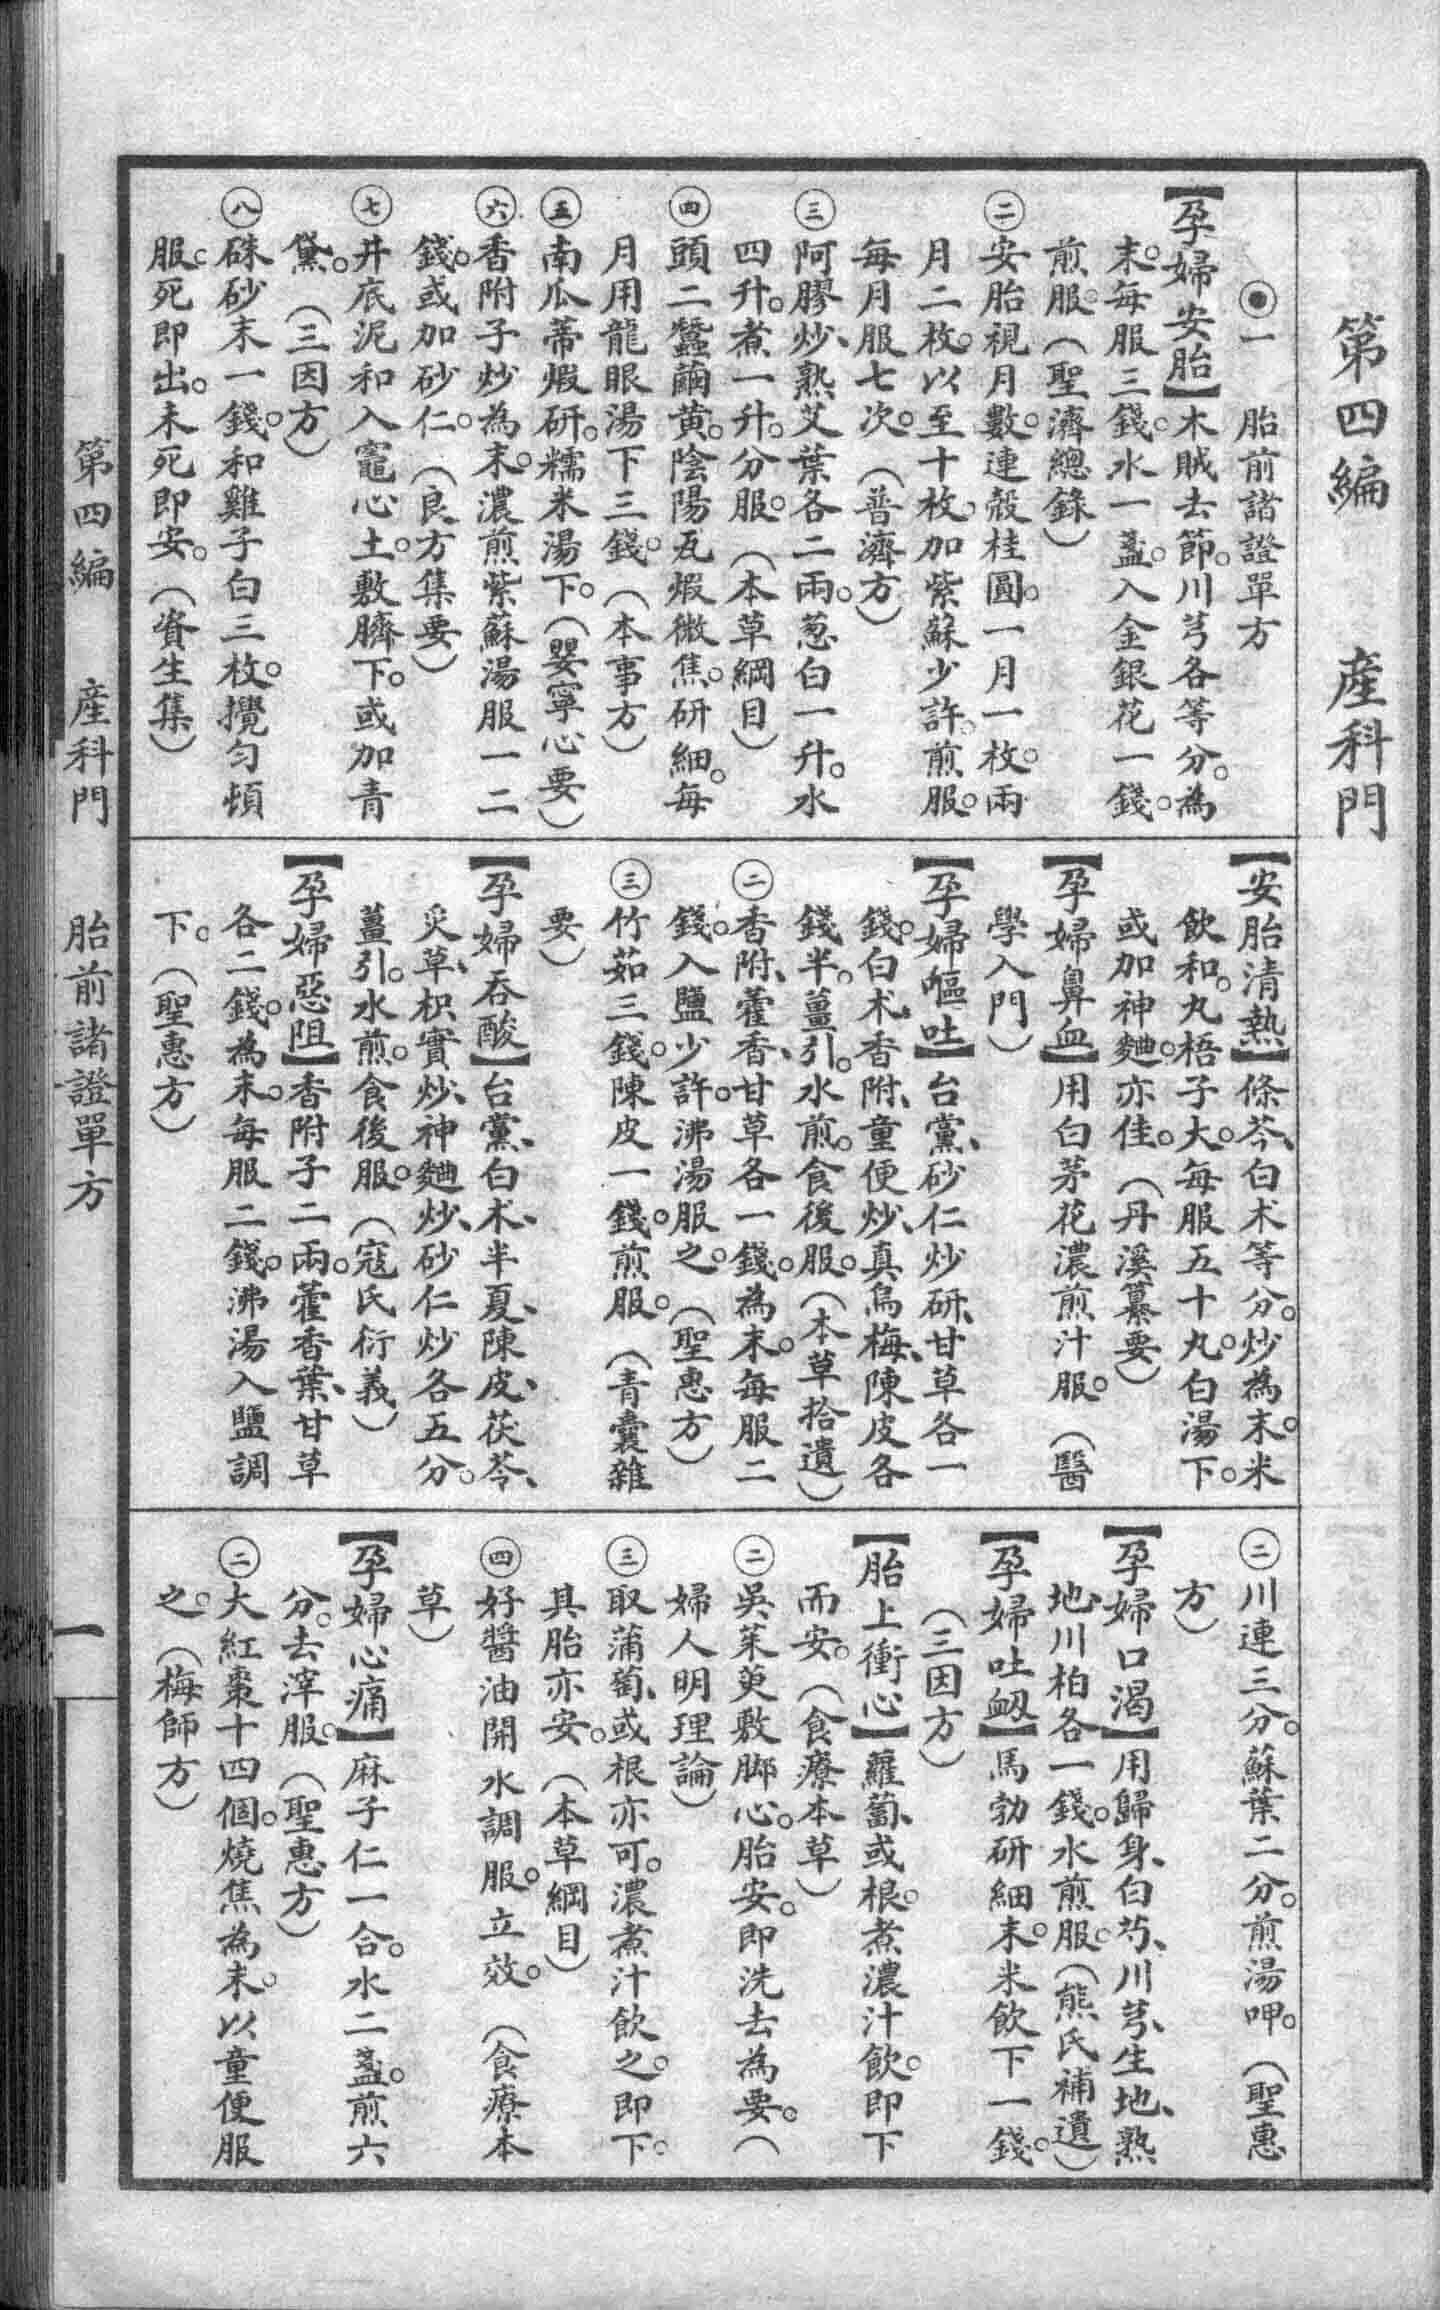 第四編　產科門
◉一　胎前諸證單方
【孕婦安胎】木賊去節。川芎各等分。為
末。每服三錢。水一盞。入金銀花一錢。
煎服。（聖濟總錄）
㊁安胎視月數。連殼桂圓。一月一枚。兩
月二枚。以至十枚。加紫蘇少許。煎服。
每月服七次。（普濟方）
㊂阿膠炒、熟艾葉各二兩。葱白一升。水
四升。煮一升。分服。（本草綱目）
㊃頭二蠶繭黃。陰陽瓦煆微焦。研細。每
月用龍眼湯下三錢。（本事方）
㊄南瓜蒂煆研。糯米湯下。（婴寧心要）
㊅香附子炒為末。濃煎紫蘇湯服一二
錢。或加砂仁。（良方集要）
㊆井底泥和入竈心土。敷臍下。或加青
黛。（三因方）
㊇硃砂末一錢。和雞子白三枚。攪匀頓
服。死即出。未死即安。（資生集）
【安胎清熱】條芩、白朮等分。炒為末。米
飲和。丸梧子大。每服五十丸。白湯下。
或加神麯亦佳。（丹溪纂要）
【孕婦鼻血】用白茅花濃煎汁服。（醫
學入門）
【孕婦嘔吐】台黨、砂仁炒研、甘草各一
錢。白朮、香附、童便炒、真烏梅、陳皮各
錢半。薑引。水煎。食後服。（本草拾遺）
㊁香附、藿香、甘草各一錢。為末。每服二
錢。入鹽少許。沸湯服之。（聖惠方）
㊂竹茹三錢。陳皮一錢。煎服。（青囊雜
要）
【孕婦吞酸】台黨、白朮、半夏、陳皮、茯苓、
炙草、枳實炒、神麯炒、砂仁炒各五分。
薑引。水煎。食後服。（寇氏衍義）
【孕婦惡阻】香附子二兩。藿香葉、甘草
各二錢。為末。每服二錢。沸湯入鹽調
下。（聖惠方）
㊁川連三分。蘇葉二分。煎湯呷。（聖惠
方）
【孕婦口渴】用歸身、白芍、川芎、生地、熟
地、川柏各一錢。水煎服。（熊氏補遺）
【孕婦吐衂】馬勃研細末。米飲下一錢。
（三因方）
【胎上衝心】蘿蔔、或根。煮濃汁飲。即下
而安。（食療本草）
㊁吳茱萸敷脚心。胎安。即洗去為要。（
婦人明理論）
㊂取蒲萄、或根亦可。濃煮汁飲之。即下。
其胎亦安。（本草綱目）
㊃好醬油開水調服。立效。（食療本
草）
【孕婦心痛】麻子仁一合。水二盞。煎六
分。去滓服。（聖惠方）
㊁大紅棗十四個。燒焦為末。以童便服
之。（梅師方）
第四編　產科門　胎前諸證單方　一